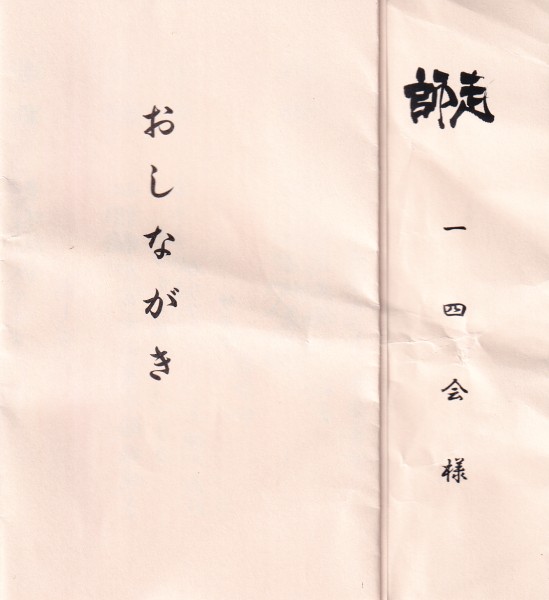 師走
一四会様
おしながき